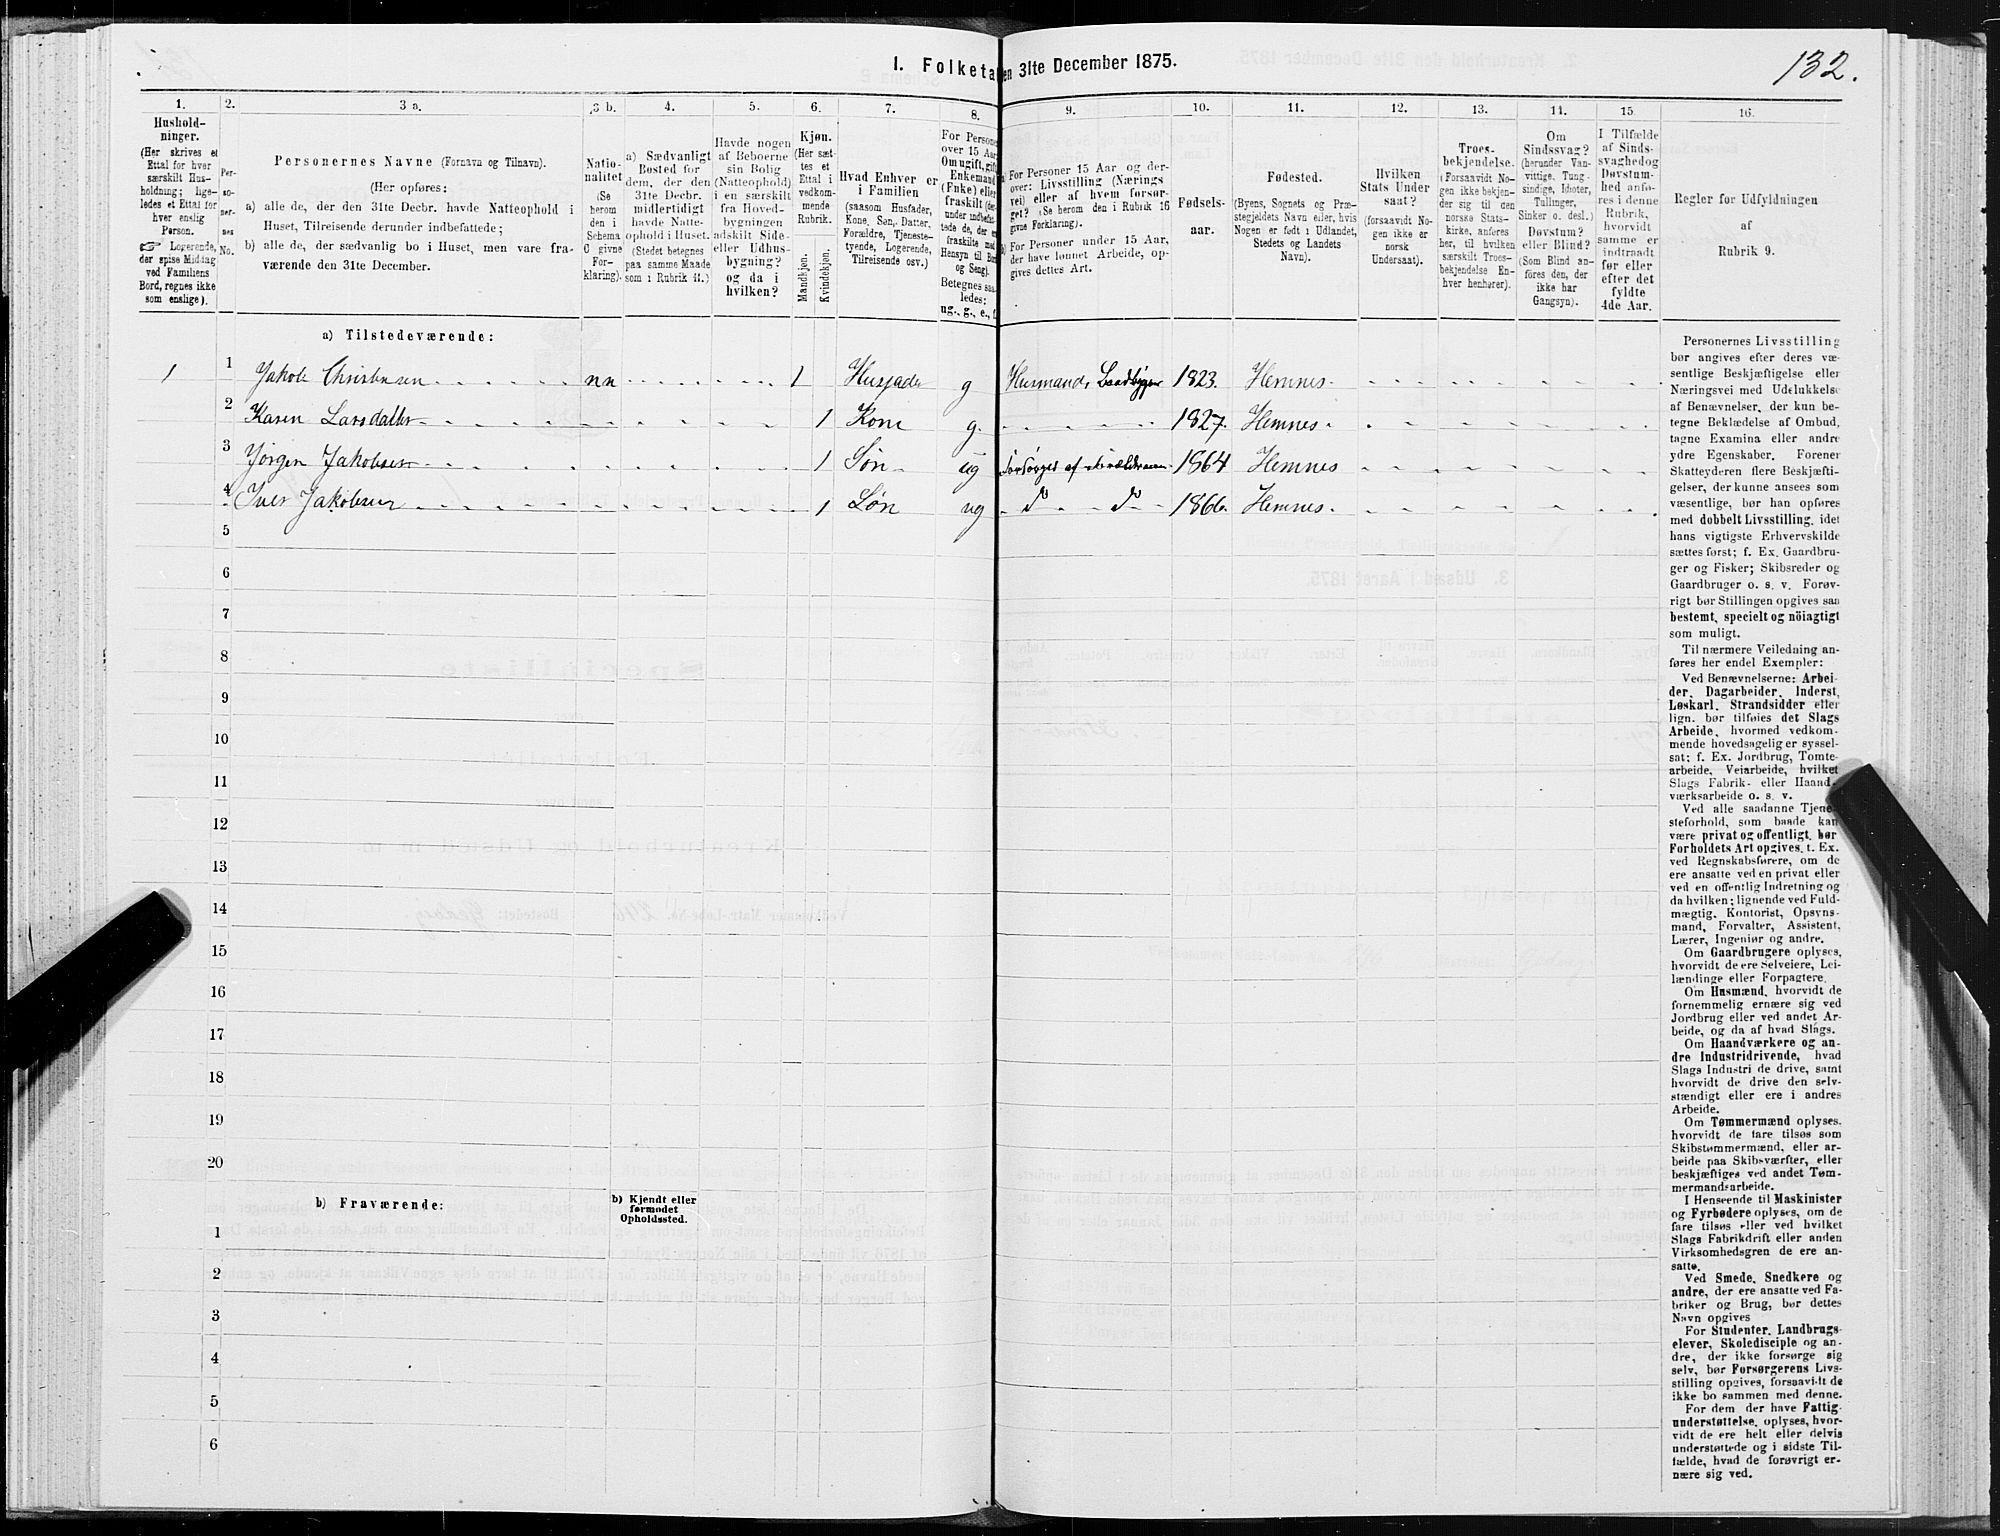 132.
1. Folketæ en 31te December 1875.
1. 2. 3 a. 3 b. 4. 5. 6. 7. 8. 9. 10. 11. 12. 13. 14. 15. 16.
Hushold-
ninger.
(Her skrives et
Ettal for hver
særskilt Hus-
holdning; lige-
ledes et Ettal for
hver enslig
Person.
☞ Logerende,
der spise Middag
ved Familiens
Bord, regnes ikke
som enslige).
Per-
so-
ner-
nes
No.
Personernes Navne (Fornavn og Tilnavn).
(Her opføres:
a) alle de, der den 31te Decbr. havde Natteophold i
Huset, Tilreisende derunder indbefattede;
b) alle de, der sædvanlig bo i Huset, men vare fra-
værende den 31te December.
Natio-
nalitet
(Se
herom
den i
Schema
C givne
For-
klaring).
a) Sædvanligt
Bosted for
dem, der den
31te Decbr.
midlertidigt
havde Natte-
ophold i Huset.
(Stedet betegnes
paa samme Maade
som i Rubrik 11.)
Havde nogen
af Beboerne
sin Bolig
(Natteophold)
i en særskilt
fra Hoved-
bygningen
adskilt Side-
eller Udhus-
bygning?
og da i
hvilken?
Kjøn.
(Her sæt-
tes et
Ettal i
vedkom-
mende
Rubrik.
Mandkjøn.
Kvindekjøn.
Hvad Enhver er
i Familien
(saasom Husfader,
Kone, Søn, Datter,
Forældre, Tjeneste-
tyende, Logerende,
Tilreisende osv.)
For Persone
over 15 Aar
Om ugift, gift
Enkemand
(Enke) eller
fraskilt (der-
under indbefat-
tede de, der er
fraskilte med
Hensyn til Bor
og Seng).
Betegnes saa-
ledes:
ug., g., e., f.
a) For Personer 15 Aar og der-
over: Livsstilling (Nærings
vei) eller af hvem forsør-
get? (Se herom den i Rubrik 16
givne Forklaring).
b) For Personer under 15 Aar,
der have lønnet Arbeide, op-
gives dettes Art.
Fødsels-
aar.
Fødested.
(Byens, Sognets og Præ-
stegjeldets Navn eller, hvis
Nogen er født i Udlandet,
Stedets og Landets
Navn).
Hvilken
Stats Under
saat?
(forsaavidt No-
gen ikke er
norsk
Undersaat).
Troes-
bekjendelse.
(Forsaavidt No-
gen ikke bekjen-
der sig til den
norske Stats-
kirke, anføres
her, til hvilken
særskilt Troes-
bekjendelse En-
hver henhører).
Om
Sindssvag?
(herunder Van-
vittige, Tung-
sindige, Idioter,
Tullinger,
Sinker o. desl.)
Døvstum?
eller Blind?
(Som Blind an-
føres den, der
ikke har
Gangsyn).
I Tilfælde
af Sinds-
svaghedog
Døvstum-
hed anfø-
res i denne
Rubrik,
hvorvidt
samme er
indtraadt
før eller
efter det
fyldte
4de Aar.
Regler for Udfyldningen
af
Rubrik 9.
a) Tilstedeværende:
1 1 Jakob Christensen nn 1 Husfader g Husmand, Baadbygger 1823. Hemnes
2 Karen Larsdatter 1 Kone g. 1827. Hemnes
3 Jørgen Jakobsen 1 Søn ug forsørges af Forældrene 1864 Hemnes
4 Iver Jakobsen 1 Søn ug d d 1866. Hemnes
5
6
7
8
9
10
11
12
13
14
15
16
17
18
19
20
b) Fraværende:
b) Kjendt eller
formodet
Opholdssted.
1
2
3
4
5
6
Personernes Livsstilling
bør angives efter deres væ-
sentlige Beskjæftigelse eller
Næringsvei med Udelukkelse
af Benævnelser, der kun be-
tegne Beklædelse af Ombud,
tagne Examina eller andre
ydre Egenskaber. Forener
Skatteyderen flere Beskjæfti-
gelser, der kunne ansees som
væsentlige, bør han opføres
med dobbelt Livsstilling, idet
hans vigtigste Erhvervskilde
sættes først; f. Ex. Gaardbru-
ger og Fisker; Skibsreder og
Gaardbruger o. s. v. Forøv-
rigt bør Stillingen opgives saa
bestemt, specielt og nöiagtigt
som muligt.
Til nærmere Veiledning an-
føres her endel Exempler:
Ved Benævnelserne: Arbei-
der, Dagarbeider, Inderst,
Løskarl, Strandsidder eller
lign. bør tilføies det Slags
Arbeide, hvormed vedkom-
mende hovedsagelig er syssel-
sat; f. Ex. Jordbrug, Tomte-
arbeide, Veiarbeide, hvilket
Slags Fabrik- eller Haand-
værksarbeide o. s. v.
Ved alle saadanne Tjene-
steforhold, som baade kan
være privat og offentligt, bør
Forholdets Art opgives, t. Ex.
ved Regnskabsførere, om de
ere ansatte ved en privat eller
ved en offentlig Indretning og
da hvilken; lignende ved Fuld-
mægtig, Kontorist, Opsyns-
mand, Forvalter, Assistent,
Lærer, Ingeniør og andre.
Om Gaardbrugere oplyses,
hvorvidt de ere Selveiere, Lei-
lændinge eller Forpagtere.
Om Husmænd, hvorvidt de
fornemmelig ernære sig ved
Jordbrug eller ved andet Ar-
beide, og da af hvad Slags.
Om Haandværkere og an-
dre Industridrivende, hvad
Slags Industri de drive, samt
hvorvidt de drive den selv-
stændigt eller ere i andres
Arbeide.
Om Tømmermænd oplyses,
hvorvidt de fare tilsøs som
Skibstømmermænd, eller ar-
beide paa Skibsværfter, eller
beskjæftiges ved andet Tøm-
mermandsarbeide.
I Henseende til Maskinister
og Fyrbødere oplyses, om de
fare tilsøs eller ved hvilket
Slags Fabrikdrift eller anden
Virksomhedsgren de ere an-
satte.
Ved Smede, Snedkere og
andre, der ere ansatte ved Fa-
briker og Brug, bør dettes
Navn opgives
For Studenter, Landbrugs-
elever, Skoledisciple og an-
dre, der ikke forsørge sig
selv, bør Forsørgerens Livs-
stilling opgives, forsaavidt de
ikke bo sammen med denne.
For dem der have Fattig-
understøttelse, oplyses, hvor-
vidt de ere helt eller delvis
understøttede og i sidste Til-
fælde, hvad de forøvrigt er-
nære sig ved.